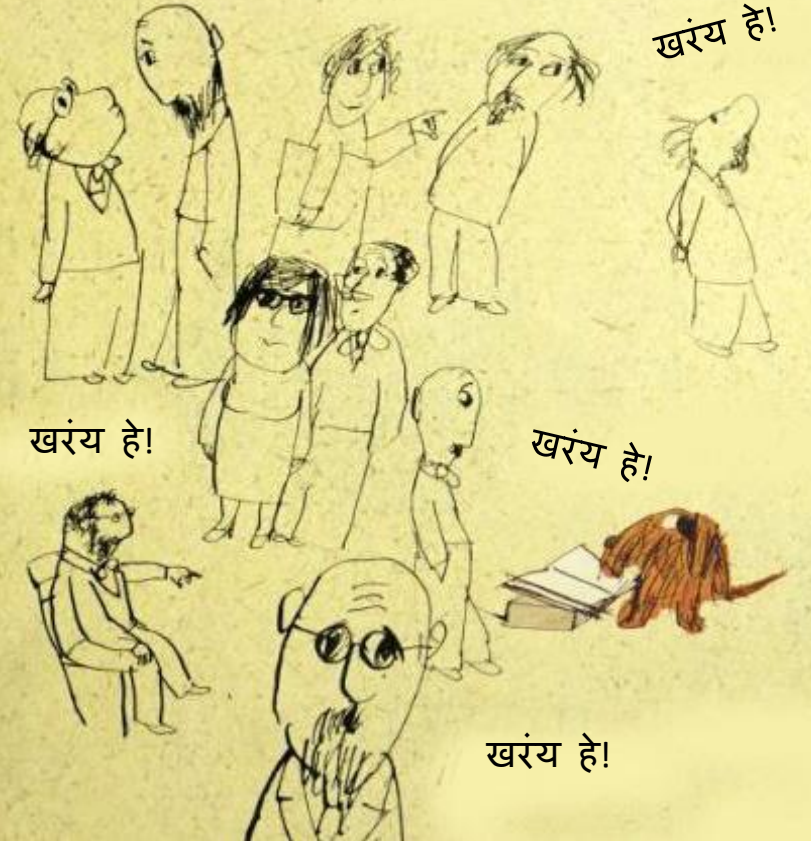 खरंय हे!
खरंय हे!
खरंय हे!
खरंय हे!